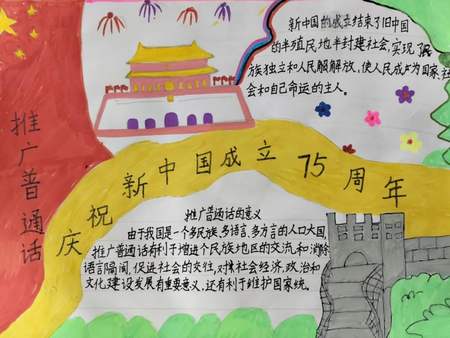 推广普通话
庆祝新中国成立75周年
新中国的成立结束了旧中国
的半殖民地半封建社会,实现了民
族独立和人民解放,使人民成为国家社
会和自己命运的主人。
推广普通话的意义
由于我国是一个多民族、多语言、多方言的人口大国,
推广普通话有利于增进各民族地区的交流,和消除
语言隔阂,促进社会的交往,对社会经济,政治和
文化建设发展有重要意义,还有利于维护国家统。